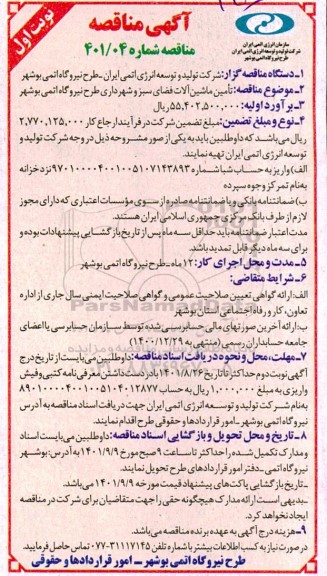 نوبت اول
آگهی مناقصه
مناقصه شماره ۴۰۱/۰۴
سازمان انرژی اتمی ایران
شرکت تولید و توسعه انرژی اتمی ایران
طرح نیروگاه اتمی بوشهر
۱-دستگاه مناقصه گزار: شرکت تولید و توسعه انرژی اتمی ایران ـ طرح نیروگاه اتمی بوشهر
۲-موضوع مناقصه: تأمین ماشین آلات فضای سبز و شهرداری طرح نیروگاه اتمی بوشهر
۳- برآورد اولیه: ۵۵,۴۰۲,۵۰۰,۰۰۰ ریال
۴-نوع و مبلغ تضمین: مبلغ تضمین شرکت در فرآیند ارجاع کار ۲,۷۷۰,۱۲۵,۰۰۰
ریال می‌باشد که داوطلبین باید به یکی از صور مشروحه ذیل در وجه شرکت تولید و
توسعه انرژی اتمی ایران تهیه نمایند.
الف) واریز به حساب شبا شماره نزد خزانه
به نام تمرکز وجوه سپرده
ب) ضمانتنامه بانکی و یا ضمانتنامه صادره از سوی مؤسسات اعتباری که دارای مجوز
لازم از طرف بانک مرکزی جمهوری اسلامی ایران هستند.
مدت اعتبار ضمانتنامه باید حداقل سه ماه پس از تاریخ بازگشایی پیشنهادات بوده و
برای سه ماه دیگر قابل تمدید باشد.
۵-مدت و محل اجرای کار: ۱۲ ماه ـ طرح نیروگاه اتمی بوشهر
۶-شرایط متقاضی:
الف: ارائه گواهی تعیین صلاحیت عمومی و گواهی صلاحیت ایمنی سال جاری از اداره
تعاون، کار و رفاه اجتماعی استان بوشهر
ب: ارائه آخرین صورتهای مالی حسابرسی شده توسط سازمان حسابرسی یا اعضای
جامعه حسابداران رسمی (منتهی به ۱۴۰۰/۱۲/۲۹)
۷-مهلت، محل و نحوه دریافت اسناد مناقصه: داوطلبین می‌بایست از تاریخ درج
آگهی نوبت دوم حداکثر تا تاریخ ۱۴۰۱/۸/۲۶ با در دست داشتن معرفی نامه کتبی و فیش
واریزی به مبلغ ۱,۰۰۰,۰۰۰ ریال به حساب
به نام شرکت تولید و توسعه انرژی اتمی ایران جهت دریافت اسناد مناقصه به آدرس
نیروگاه اتمی بوشهر ـ امور قراردادها و حقوقی طرح اقدام نمایند.
۸-تاریخ و محل تحویل و بازگشایی اسناد مناقصه: داوطلبین می‌بایست اسناد
و مدارک تکمیل شده را حداکثر تا ساعت ۹ صبح مورخ ۱۴۰۱/۹/۹ به آدرس: بوشهر
نیروگاه اتمی ـ دفتر امور قراردادهای طرح تحویل نمایند.
ـ تاریخ بازگشایی پاکت‌های پیشنهاد قیمت مورخه ۱۴۰۱/۹/۹ می‌باشد.
ـ بدیهی است ارائه مدارک هیچگونه حقی را جهت متقاضیان برای شرکت در مناقصه
ایجاد نخواهد کرد.
۹-هزینه درج آگهی به عهده برنده مناقصه می‌باشد.
در صورت نیاز به کسب اطلاعات بیشتر با شماره تلفن ۳۱۱۱۷۱۴۵-۰۷۷ تماس حاصل فرمایید.
طرح نیروگاه اتمی بوشهر ـ امور قراردادها و حقوقی